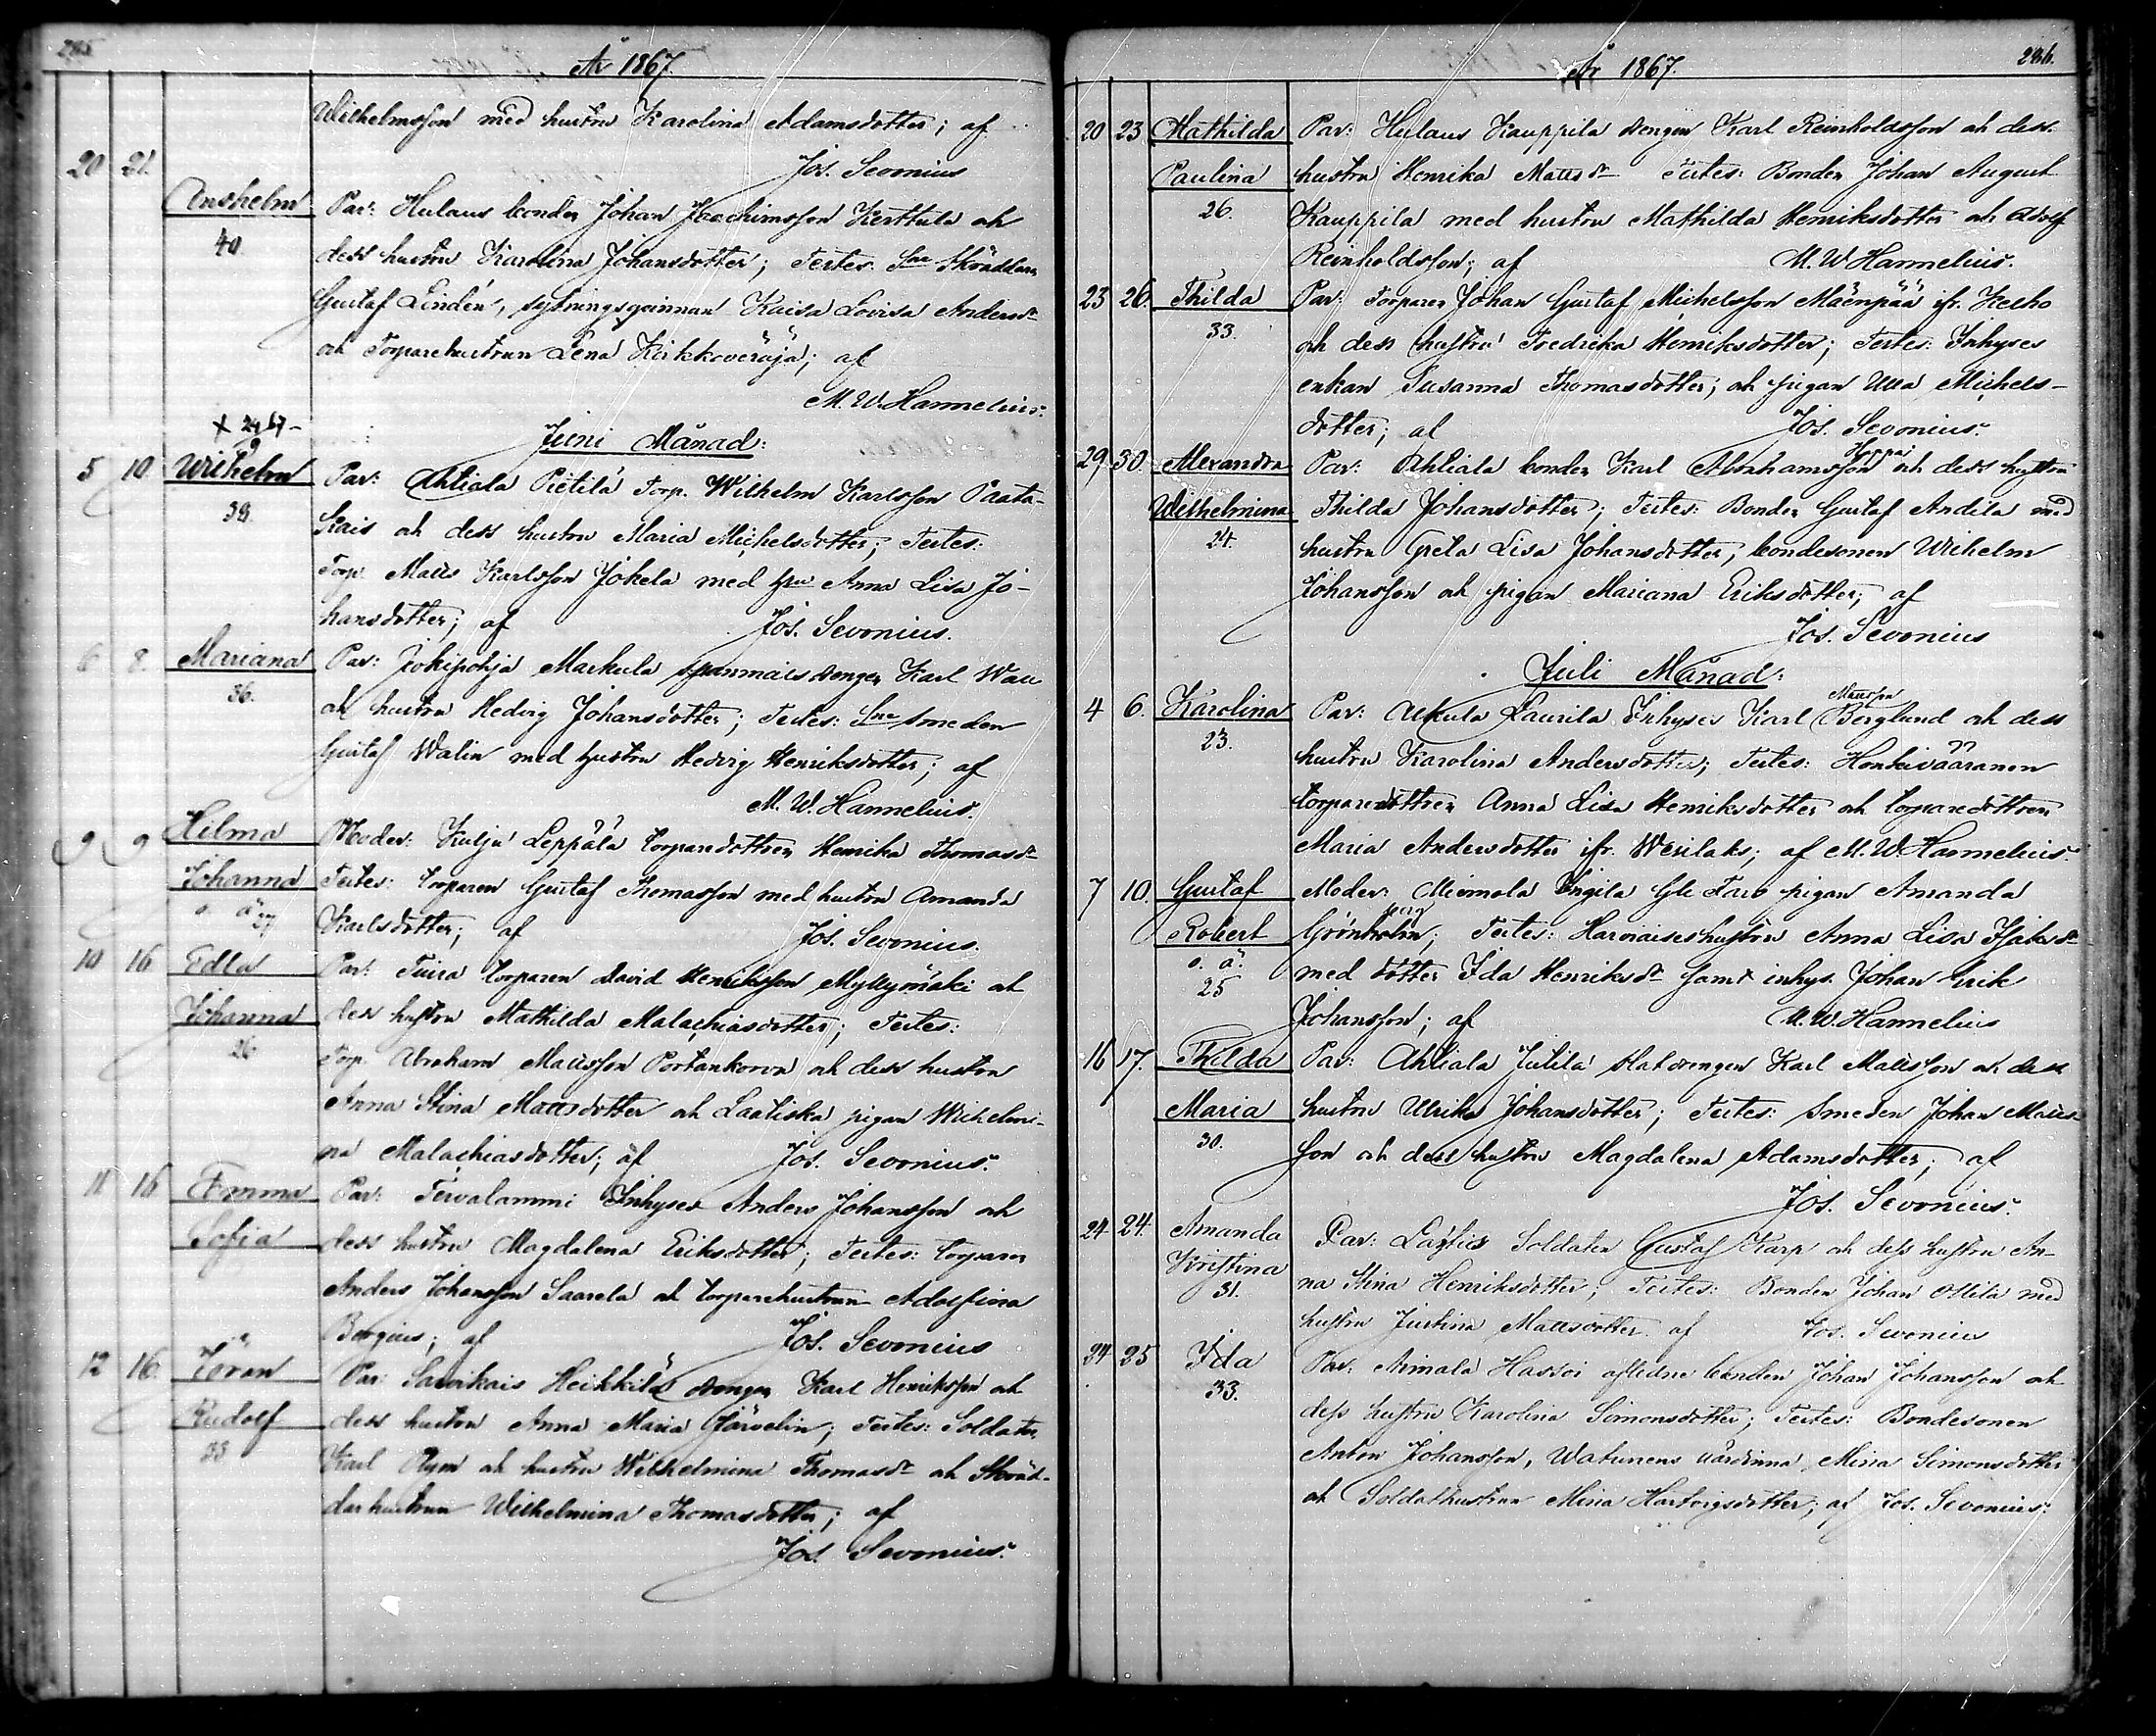 285
År 1867.
Wilhelmsson med hustru Karolina Adamsdotter; af
Jos. Sevonius
20 21. Anshelm Par: Hulaus bonden Johan Joachimsson Kerttula och
40. dess hustru Karolina Johansdotter; Testes: Skräddaren
Gustaf Lindén, sytningsqvinnan Kaisa Lovisa Andersdr
och Torparehustrun Lena Kirkkoveräjä; af
M. W. Hannelius.
Juni Månad:
5 10 Wilhelm Par: Ahtiala Pietilä Torp. Wilhelm Karlsson Paata-
38. kais och dess hustru Maria Michelsdotter; Testes:
Torp. Matts Karlsson Jokela med hu Anna Lisa Jo-
hansdotter; af Jos. Sevonius.
6 8. Mariana Par: Jokipohja Markula spanmålsdrengen Karl Wall
36. och hustru Hedvig Johansdotter; Testes: Smeden
Gustaf Walin med hustru Hedvig Henriksdotter; af
M. W. Hannelius.
9 9 Hilma Moder: Kulju Leppälä torparedottren Henrika Thomasdr
Johanna Testes: torparen Gustaf Thomasson med hustru Amanda
o. ä. 27 Karlsdotter; af Jos. Sevonius.
10 16 Edla Par: Tuira torparen David Henriksson Myllymäki och
Johanna dess hustru Mathilda Malachiasdotter; Testes:
26 Torp. Abraham Mattsson Portankorva och dess hustru
Anna Stina Mattsdotter och Laatiska pigan Wilhelmi-
na Malachiasdotter; af Jos. Sevonius.
11 16 Emma Par: Tervalammi Inhyses Anders Johansson och
Sofia dess hustru Magdalena Eriksdotter; Testes: torparen
Anders Johansson Saarela och torparehustrun Adolfina
Bergius; af Jos. Sevonius
12 16. Göran Par: Sarvikais Heikkilä drengen Karl Henriksson och
Rudolf dess hustru Anna Maria Järvelin; Testes: Soldaten
33 Karl Rym och hustru Wilhelmina Thomasdr och Skräd-
darhustrun Wilhelmina Thomasdotter; af
Jos. Sevonius.
År 1867.
286.
20 23 Mathilda Par: Hulaus Kauppila drengen Karl Reinholdsson och dess
Paulina hustru Henrika Mattsdr Testes: Bonden Johan August
26. Kauppila med hustru Mathilda Henriksdotter och Adolf
Reinholdsson; af M. W. Hannelius.
23 26. Thilda Par: Torparen Johan Gustaf Michelsson Mäenpää ifr. Kelho
33. och dess hustru Fredrika Henriksdotter; Testes: Inhyses
enkan Susanna Thomasdotter; och pigan Ulla Michels-
dotter; af Jos. Sevonius.
29 30. Alexandra Par: Ahtiala bonden Karl Abrahamsson och dess hustru
Wilhelmina Thilda Johansdotter; Testes: Bonden Gustaf Andila med
24. hustru Greta Lisa Johansdotter, bondesonen Wilhelm
Johansson och pigan Mariana Eriksdotter; af
Jos. Sevonius
Juli Månad:
Mattsson
4 6. Karolina Par: Alkula Laurila Inhyses Karl Berglund och dess
23. hustru Karolina Andersdotter; Testes: Honkivääranen
torparedottren Anna Lisa Henriksdotter och torparedottren
Maria Andersdotter ifr. Wesilaks; af M. W. Hannelius.
7 10. Gustaf Moder: Miemola Yngila pigan Amanda
berg
Robert Grönholm; Testes: Harviaiseshustrun Anna Lisa Isaksdr
o. ä. med dotter Ida Henriksdr samt inhys. Johan Erik
25 Johansson; af M. W. Hannelius
16 17. Thilda Par: Ahtiala Jutila statdrengen Karl Mattsson och dess
Maria hustru Ulrika Johansdotter; Testes: Smeden Johan Matts-
30. son och dess hustru Magdalena Adamsdotter; af
Jos. Sevonius.
24 24. Amanda Par: Soldaten Gustaf Karp och dess hustru An-
Kristina na Stina Henriksdotter; Testes: Bonden Johan Ollila med
31. hustru Justina Mattsdotter af Jos. Sevonius
24 25 Ida Par: Aimala Hassoi aflidne bonden Johan Johansson och
33. dess hustru Karolina Simonsdotter; Testes: Bondesonen
Anton Johansson, Watunens värdinna Mina Simonsdotter
och Soldathustrun Mina Hartvigsdotter; af Jos. Sevonius.